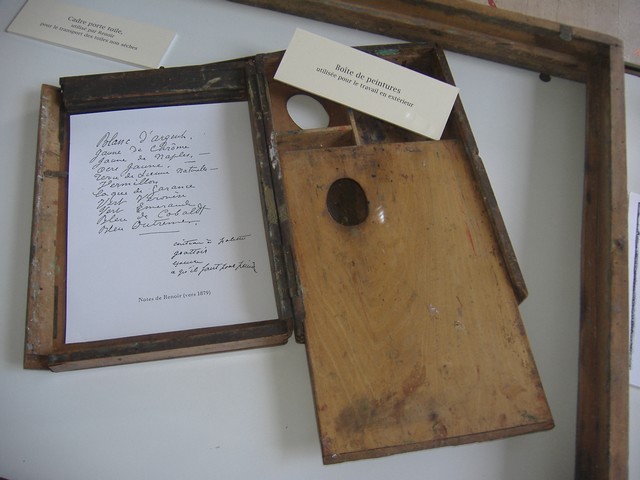 Cadre porte toile,
utilisé par Renoir
pour le transport des toiles non sèches
Boîte de peintures
utilisée pour le travail en extérieur
Blanc d'argent.
Jaune de Chrôme
Jaune de Naples,
Ocre Jaune.
Terre de Sienne Naturelle
Vermillon
Laque de Garance
Vert Véronèse
Vert Emeraude
Bleu de Cobalt
Bleu Outremer
couteau à palette
grattoir
essence
qu'il faut pour peindre
Notes de Renoir (vers 1879)